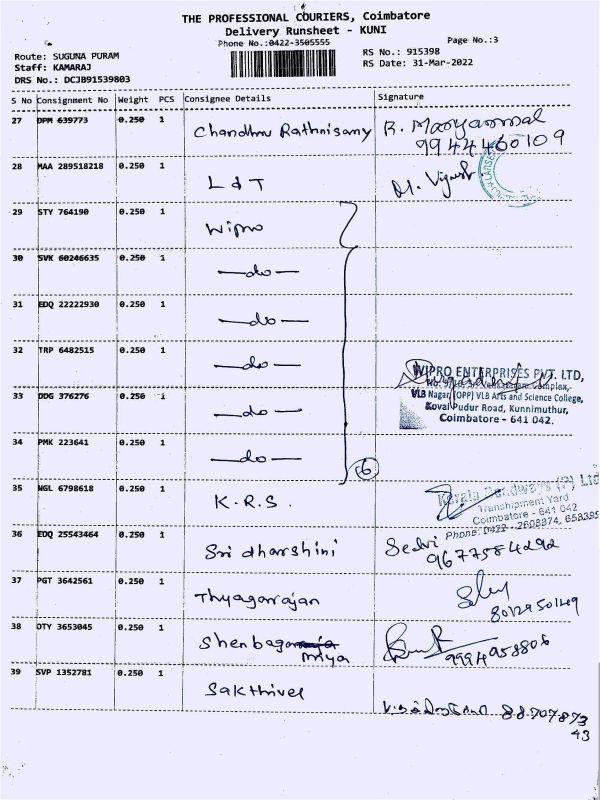 THE PROFESSIONAL COURIERS, Coimbatore
Delivery Runsheet - KUNI
Phone No.:0422-3505555
Page No.:3
Route: SUGUNA PURAM
Staff: KAMARAJ
DRS No.: DCJB91539803
RS No.: 915398
RS Date: 31-Mar-2022
S No Consignment No Weight PCS Consignee Details Signature
27 DPM 639773 0.250 1 Chandhru Rathnisamy R. Maryammal
9944460109
28 MAA 289518218 0.250 1 L & T M. Vignesh
LARSEN
29 STY 764190 0.250 1 Wipro
30 SVK 60246635 0.250 1 —do—
31 EDQ 22222930 0.250 1 —do—
32 TRP 6482515 0.250 1 —do—
WIPRO ENTERPRISES PVT. LTD,
Complex,
33 DDG 376276 0.250 1 —do—
VLB Nagar, (OPP) VLB Arts and Science College,
Kovai Pudur Road, Kunnimuthur,
Coimbatore - 641 042.
34 PMK 223641 0.250 1 —do—
6
35 NGL 6798618 0.250 1 K.R.S.
Kerala Roadways (P) Ltd
Transhipment Yard
Coimbatore - 641 042
Phone: 0422 - 2608874, 658395
36 EDQ 25543464 0.250 1 Sri dharshini Sedri
9677584292
37 PGT 3642561 0.250 1 Thyagarajan
8012950149
38 OTY 3653045 0.250 1 Shenbaga
priya
9994958806
39 SVP 1352781 0.250 1 Sakthivel
88707873
43